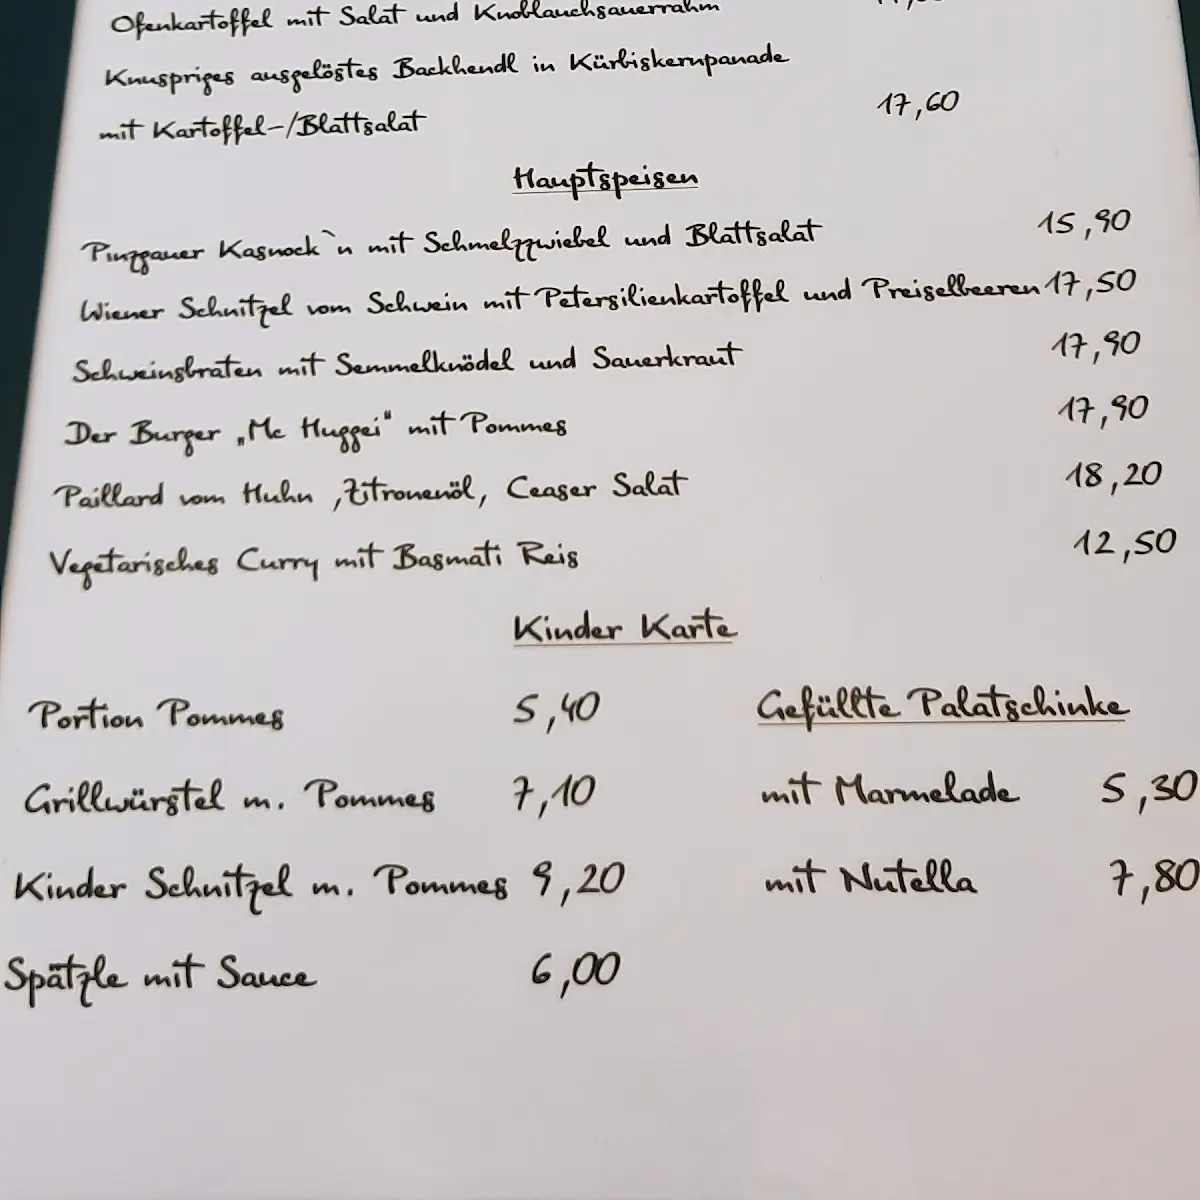 Ofenkartoffel mit Salat und Knoblauchsauerrahm
Knuspriges ausgelöstes Backhendl in Kürbiskernpanade
mit Kartoffel-/Blattsalat 17,60
Hauptspeisen
Pinzgauer Kasnock`n mit Schmelzzwiebel und Blattsalat 15,90
Wiener Schnitzel vom Schwein mit Petersilienkartoffel und Preiselbeeren 17,50
Schweinsbraten mit Semmelknödel und Sauerkraut 17,90
Der Burger „Mc Huggei" mit Pommes 17,90
Paillard vom Huhn ,Zitronenöl, Ceaser Salat 18,20
Vegetarisches Curry mit Basmati Reis 12,50
Kinder Karte
Portion Pommes 5,40
Grillwürstel m. Pommes 7,10
Kinder Schnitzel m. Pommes 9,20
Spätzle mit Sauce 6,00
Gefüllte Palatschinke
mit Marmelade 5,30
mit Nutella 7,80